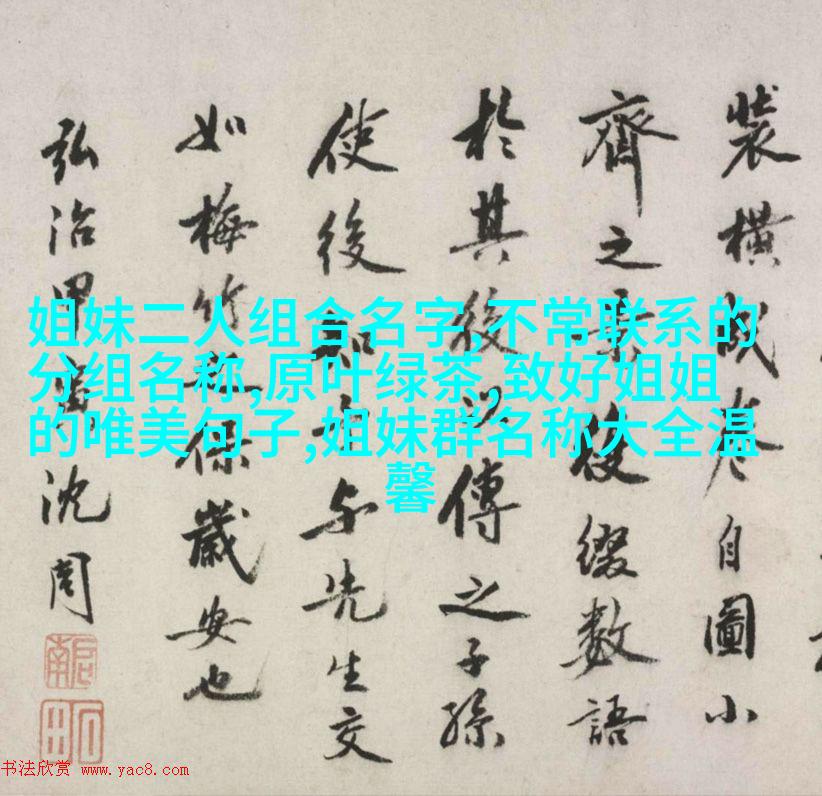 姐妹二人组合名字,不常联系的
分组名称,原叶绿茶,致好姐姐
的唯美句子,姐妹群名称大全温
馨
裝橫成卷自圖小
齊之綴數語
於其後以傳之子孫
使後知与先生交
如梅竹保歲安也
弘治甲寅沈周
啟南
石田
书法欣赏 www.yac8.com